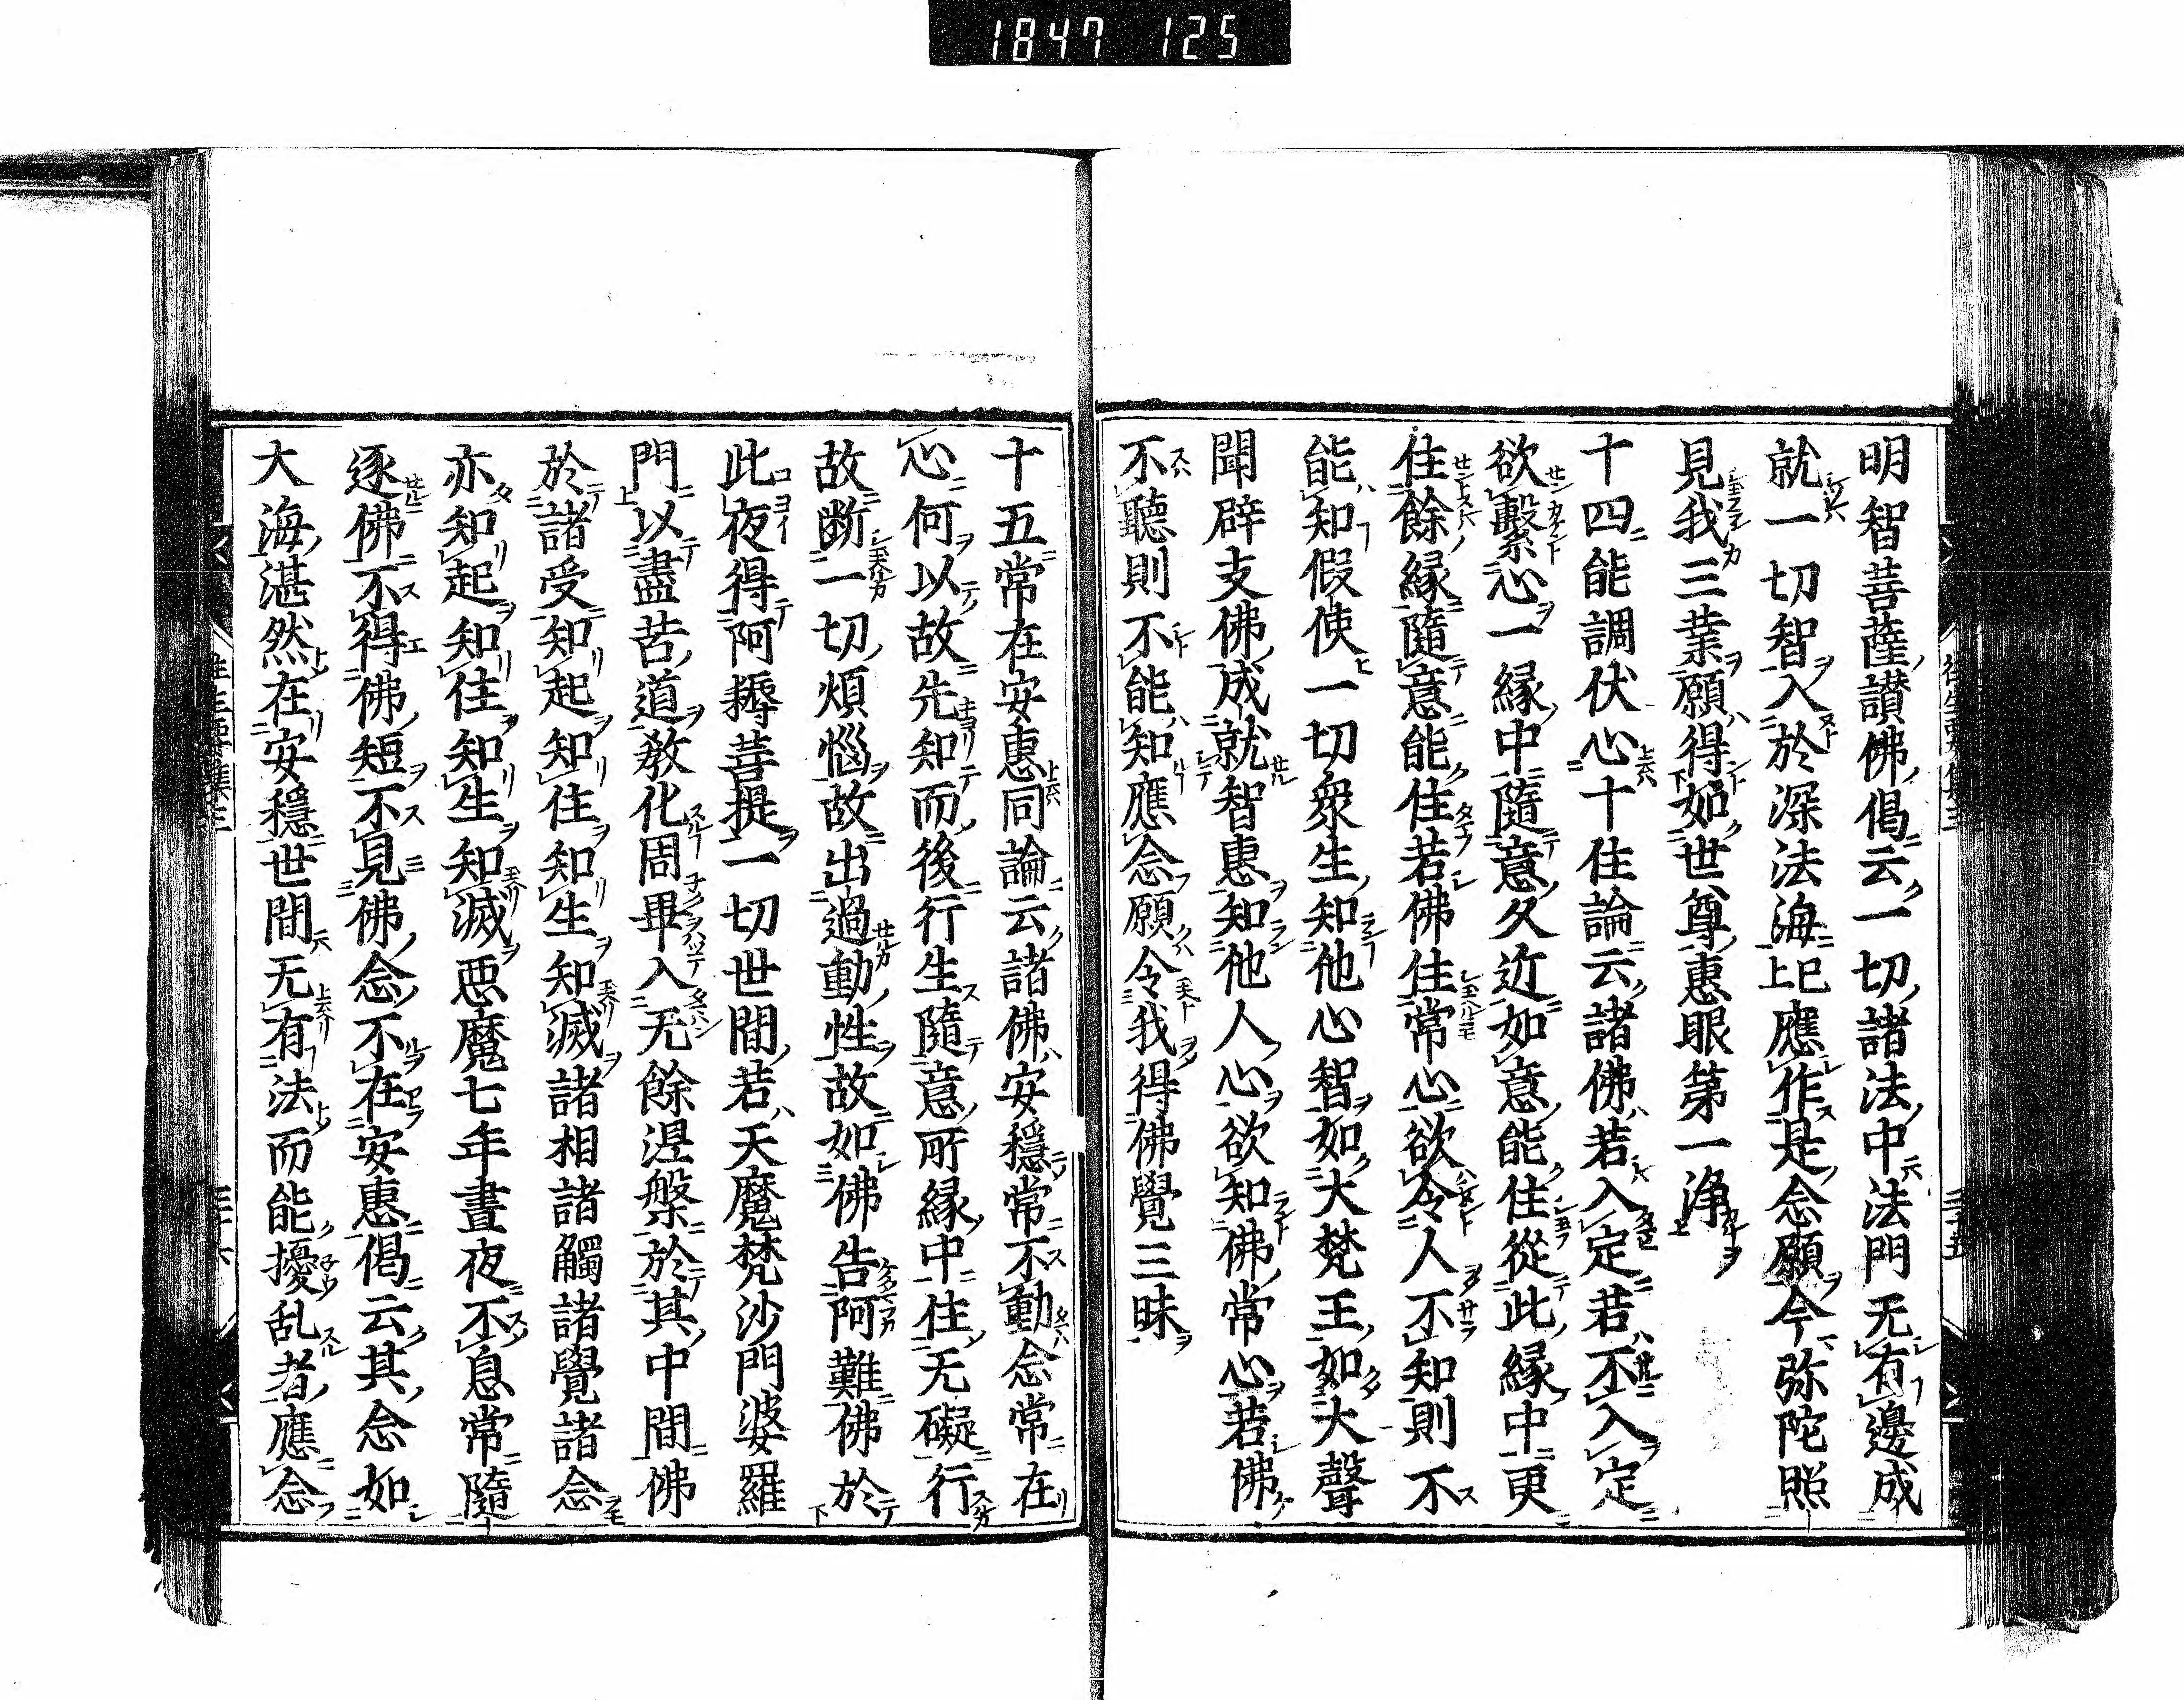 1847 125
明智菩薩讃佛偈云一切諸法中法門无有邊成
就一切智入於深法海已上應作是念願今弥陀照
見我三業願得如世尊惠眼第一浄
十四能調伏心十住論云諸佛若入定若不入定
欲繫心一縁中隨意久近如意能住從此縁中更
住餘縁隨意能住若佛住常心欲令人不知則不
能知假使一切衆生知他心智如大梵王如大聲
聞辟支佛成就智惠知他人心欲知佛常心若佛
不聽則不能知應念願令我得佛覺三昧
十五常在安惠同論云諸佛安穩常不動念常在
心何以故先知而後行生隨意所縁中住无礙行
故断一切煩惱故出過動性故如佛告阿難佛於
此夜得阿耨菩提一切世間若天魔梵沙門婆羅
門以盡苦道教化周畢入无餘涅槃於其中間佛
於諸受知起知住知生知滅諸相諸觸諸覺諸念
亦知起知住知生知滅悪魔七年晝夜不息常隨
逐佛不得佛短不見佛念不在安惠偈云其念如
大海湛然在安穩世間无有法而能擾乱者應念